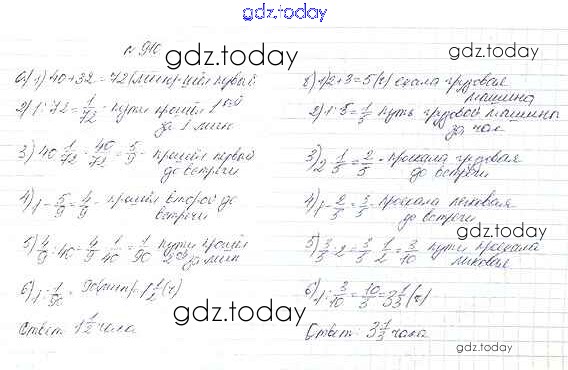 gdz.today
№ 910
gdz.today
а) 1) 40+32=72 (мин) - шёл первый
2) 1:72=1/72 - пути прошёл 1ый
за 1 мин
3) 40·1/72=40/72=5/9 - прошёл первый
до встречи
4) 1-5/9=4/9 - прошёл второй до
встречи
5) 4/9:40=4/9·1/40=1/90 пути прошёл
за мин
6) 1:1/90=90 мин=1 1/2 (ч)
Ответ: 1 1/2 часа
gdz.today
б) 1) 2+3=5 (ч) ехала грузовая
машина
2) 1:5=1/5 путь грузовой машины
за час
3) 2·1/5=2/5 - проехала грузовая
до встречи
4) 1-2/5=3/5 - проехала легковая
до встречи
gdz.today
5) 3/5:2=3/5·1/2=3/10 пути проехала
легковая
6) 1:3/10=10/3=3 1/3 (ч)
Ответ: 3 1/3 часа
gdz.today
gdz.today